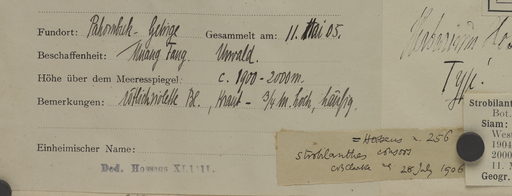 Fundort: Pahombuk-Gebirge Gesammelt am: 11. Mai 05.
Beschaffenheit: Muang Fang. Urwald.
Höhe über dem Meeresspiegel: c. 1900-2000m.
Bemerkungen: rötlichviolette Bl., Kraut - ¾ m. hoch, häufig.
Einheimischer Name:
Ded. Hosseus XI.1911.
Herbarium
Type!
= Hosseus n. 256
Strobilanthes consors
CBClarke 28 July 1908
Strobilant
Bot.
Siam:
West
1904
2000
11. M
Geogr.